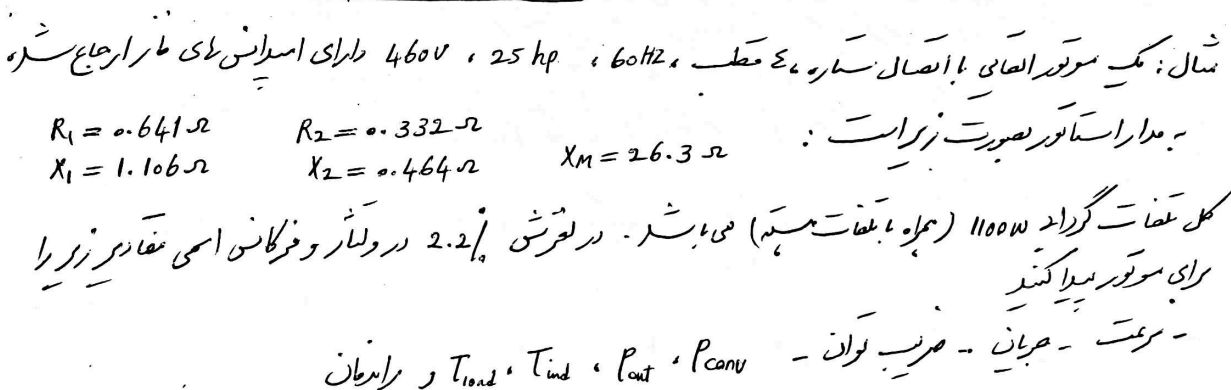 مثال: یک موتور القایی با اتصال ستاره، ٤ قطب، 60HZ، 25 hp، 460V دارای امپدانس های فاز ارجاع شده
به مدار استاتور بصورت زیر است:
R1 = 0.641 Ω R2 = 0.332 Ω
X1 = 1.106 Ω X2 = 0.464 Ω XM = 26.3 Ω
کل تلفات گردابی 1100w (همراه با تلفات هسته) می باشد. در لغزش 2.2% در ولتاژ و فرکانس اسمی مقادیر زیر را
برای موتور پیدا کنید
- سرعت - جریان - ضریب توان - Pconv، Pout، Tind، Tload و راندمان